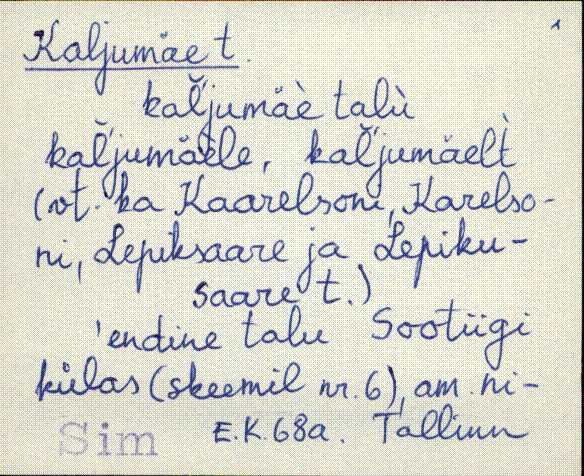 1
Kaljumäe t.
kal̆'jumäè talù
kal̆'jumäele, kal̆'jumäelt̀
(vt. ka Kaarelsoni, Karelso-
ni, Lepiksaare ja Lepiku-
saare t.)
'endine talu Sootiigi
külas (skeemil nr. 6), am. ni-
Sim E.K. 68a. Tallinn